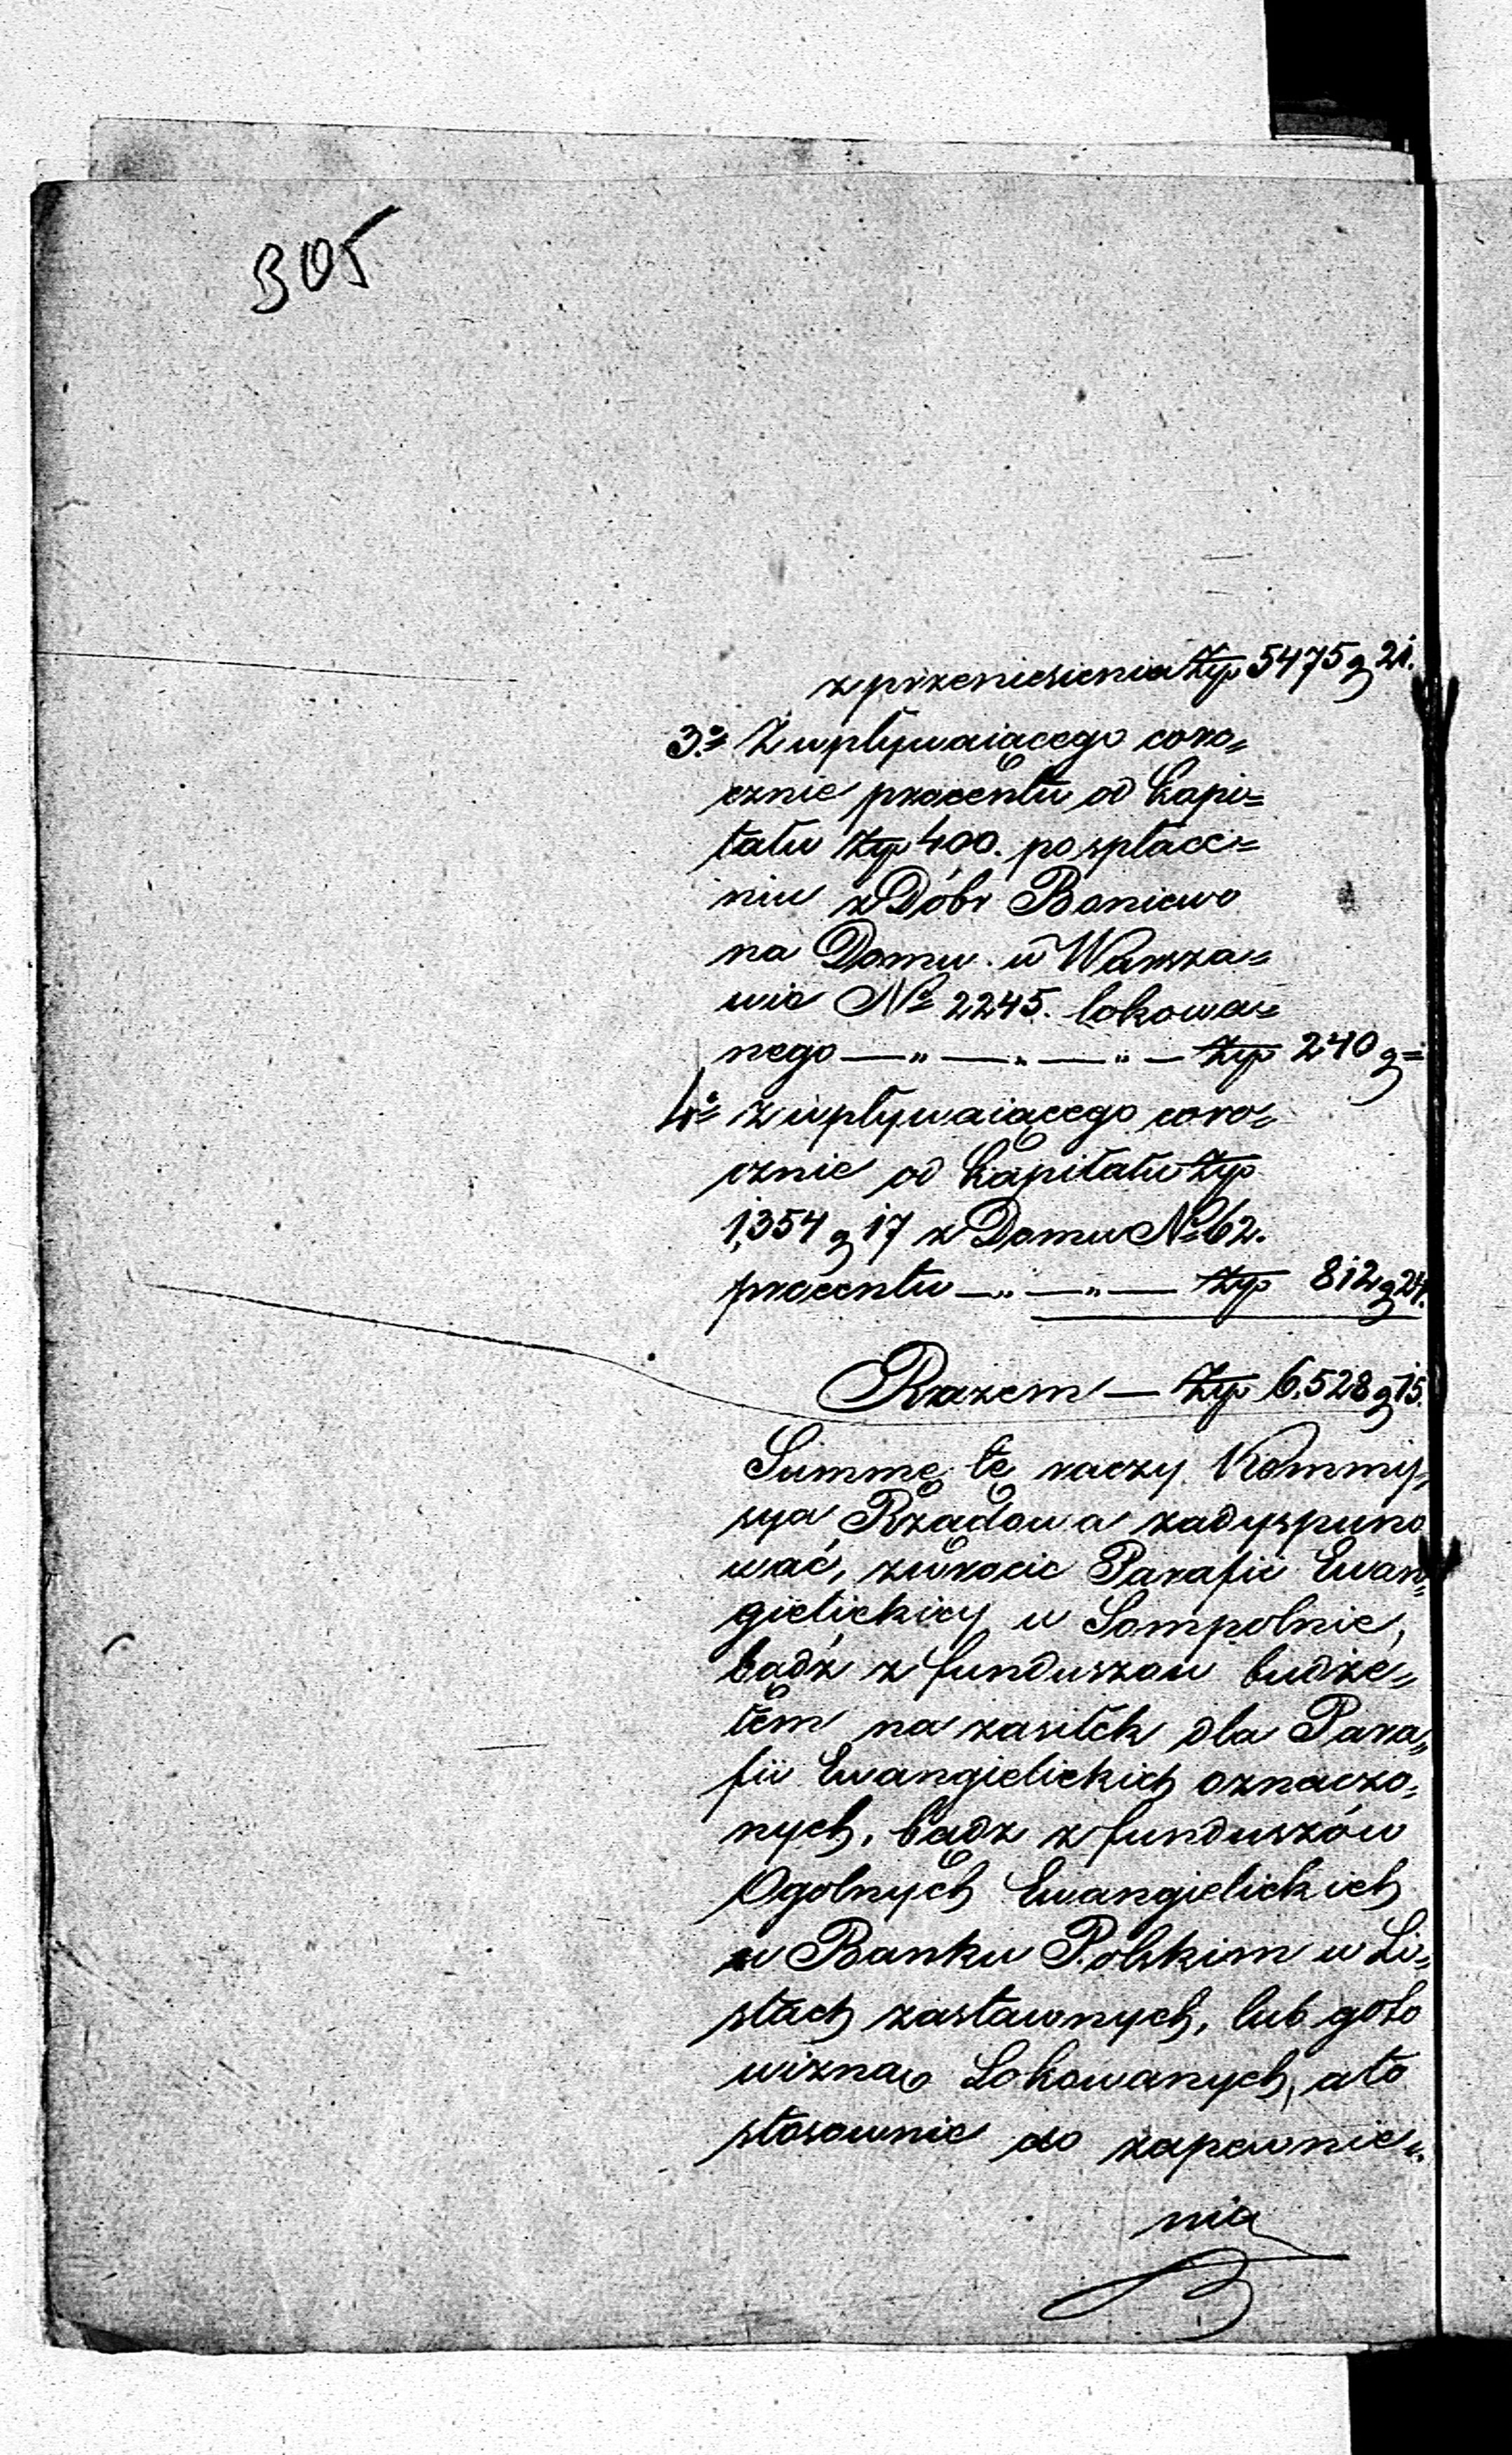 305
z przeniesienia Złp 5475 g 21.
3.° Z wpływaiącego coro„
cznie procentu od kapi=
tału Złp 400. po spłace=
niu z Dóbr Boniewo
na Domu w Warsza=
wie N° 2245. lokowa=
nego — „ — „ — „ — Złp 240 g =
4° z wpływaiącego coro„
cznie od kapitału Złp
1,354 g 17 z Domu N° 62.
procentu — „ — „ — Złp 812 g 24.
Razem — Złp 6.528 g 15.
Summę tę raczy Kommis„
sya Rządowa zadyspuno
wać, zwrocic Parafii Ewan„
gielickiey w Sompolnie,
bądź z funduszow budże„
tem na zasiłek dla Para„
fii Ewangielickich oznaczo„
nych, bądz z funduszów
Ogolnych Ewangielickich
w Banku Polskim w Li„
stach zastawnych, lub goto
wizną Lokowanych, a to
stosownie do zapewnie„
nia